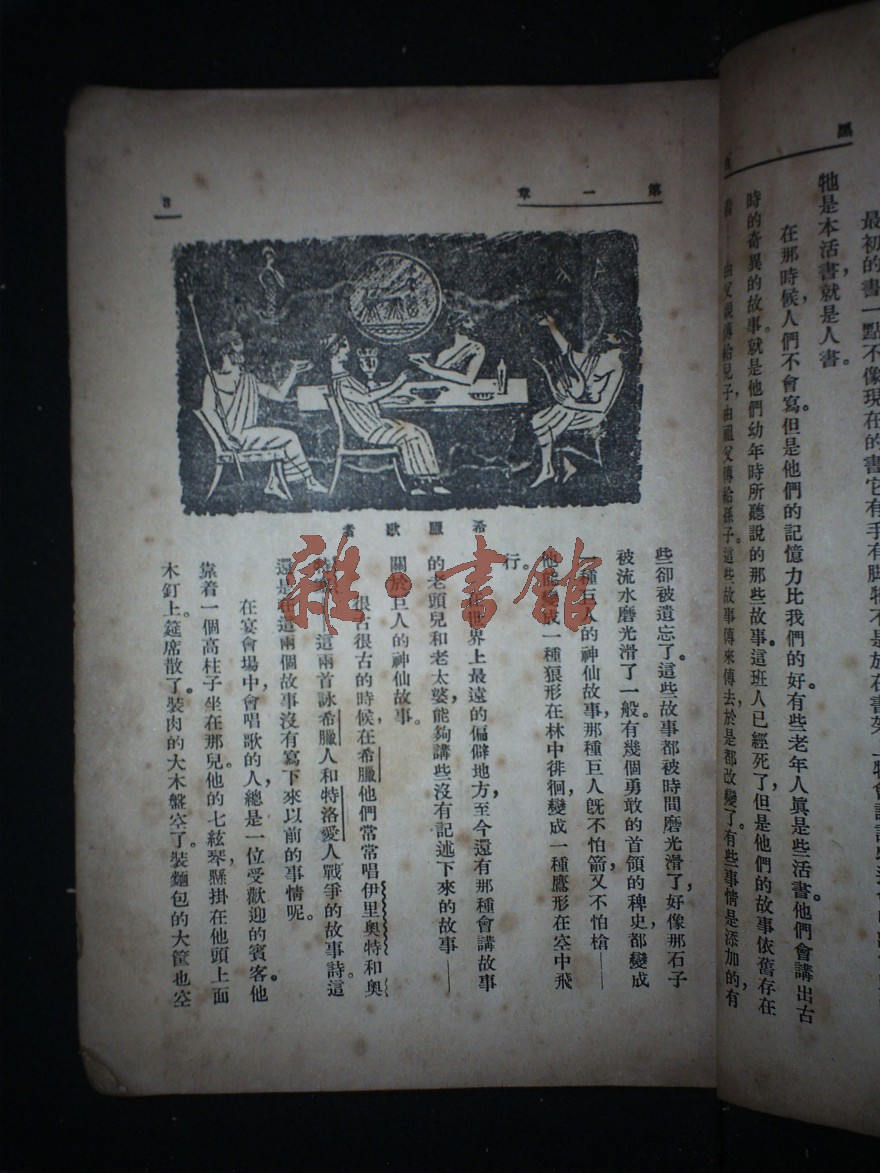 黑
最初的書一點不像現在的書它有手有脚牠不是放在書架
牠是本活書，就是人書。
在那時候，人們不會寫。但是他們的記憶力比我們的好有些老年人眞是些活書。他們會講出古
時的奇異的故事。就是他們幼年時所聽說的那些故事。這班人已經死了，但是他們的故事依舊存在
着——由父親傳給兒子，由祖父傳給孫子。這些故事傳來傳去，於是都改變了。有些事情是添加的，有
第一章
希臘歌者
些卻被遺忘了。這些故事都被時間磨光滑了，好像那石子
被流水磨光滑了一般。有幾個勇敢的首領的稗史都變成
一種巨人的神仙故事，那種巨人旣不怕箭，又不怕槍——
他能變成一種狼形在林中徘徊，變成一種鷹形在空中飛
行。
在世界上最遠的偏僻地方，至今還有那種會講故事
的老頭兒和老太婆，能夠講些沒有記述下來的故事——
關於巨人的神仙故事。
很古很古的時候，在希臘他們常常唱伊里奧特和奧
特賽，這兩首詠希臘人和特洛愛人戰爭的故事詩。這
還是在這兩個故事沒有寫下來以前的事情呢。
在宴會場中，會唱歌的人，總是一位受歡迎的賓客。他
靠着一個高柱子坐在那兒。他的七絃琴，懸掛在他頭上面
木釘上。筵席散了。裝肉的大木盤空了。裝麵包的大筐也空
雜·書館